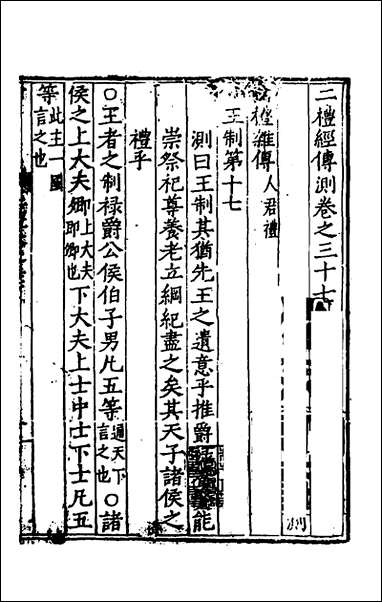 二禮經傳測卷之三十七
測
禮雜傳 人君禮
王制第十七
測曰王制其猶先王之遺意乎推爵 能
崇祭祀尊養老立綱紀盡之矣其天子諸侯之
禮乎
○王者之制祿爵公侯伯子男凡五等 通天下言之也 ○諸
侯之上大夫卿 即上大夫即卿也 下大夫上士中士下士凡五
等 此主一國言之也